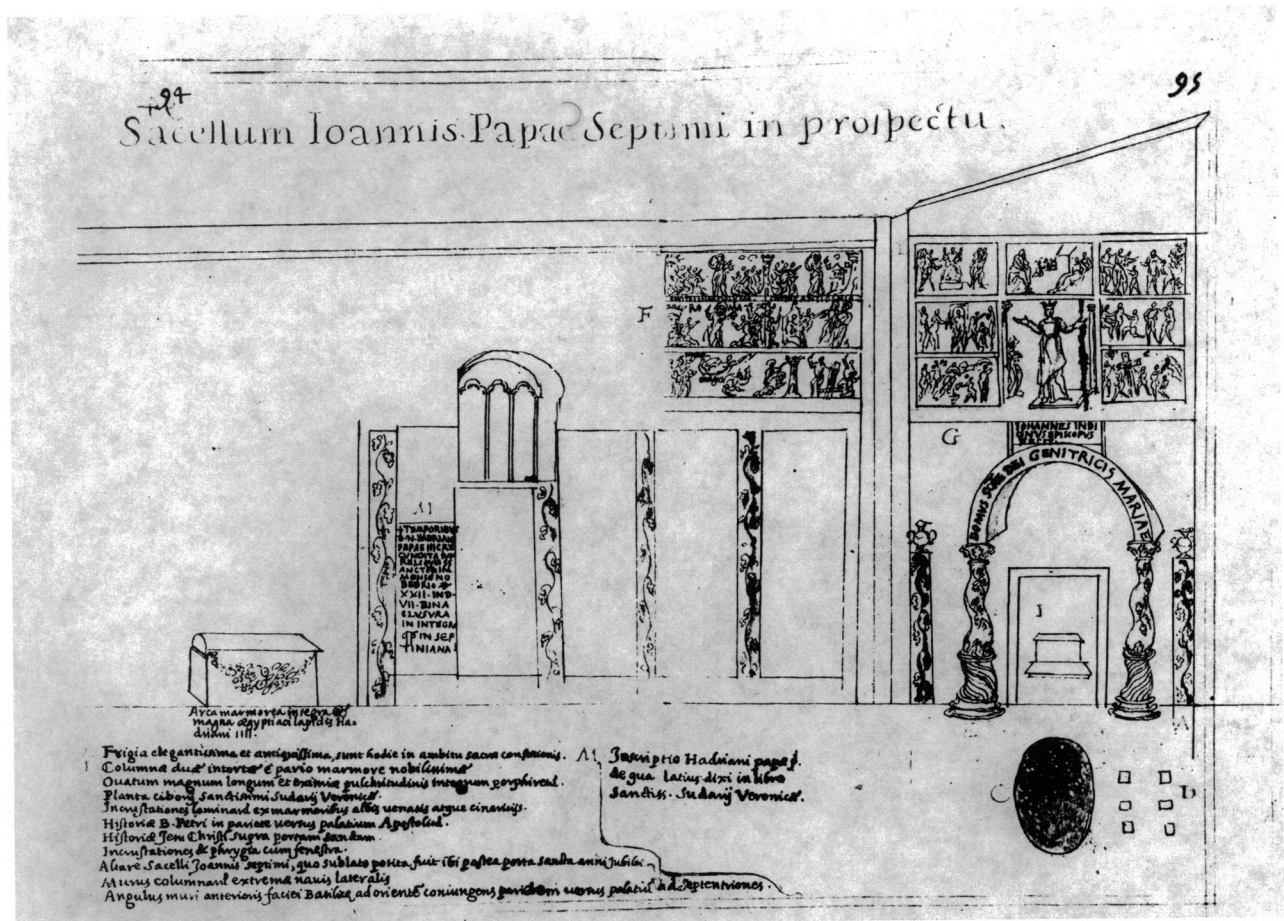 94
95
Sacellum Ioannis Papae Septimi in prospectu.
F
G
JOHANNES INDI
GNVS EPISCOPUS
DOMUS SCAE DEI GENITRICIS MARIAE
M
+TEMPORIBUS
D·N·HADRIANI
PAPAE HIC RE
CUNDITA
RELIQUIAS S
ANCTORUM IN
MENSE NO
BEBRIO
XXII·IND·
VII·BINA
CLUSURA
IN INTEGRA
IN SEP
TINIANA
I
Arca marmorea integra et
magna ægyptiaci lapidis Ha-
driani IIII.
Frigia elegantissima et antiquissima, sunt hodie in ambitu sacræ confessionis.
Columnæ duæ intortæ è pario marmore nobilissimæ
Ouatum magnum longum et eximiæ pulchritudinis integrum porphireum.
Planta ciborij sanctissimi Sudarij Veronicæ.
Incrustationes laminarum ex marmoribus albis venatis atque cinericijs.
Historiæ B. Petri in pariete uersus palatium Apostolicum.
Historiæ Jesu Christi supra portam sanctam.
Incrustationes & phrygia cum fenestra.
Altare Sacelli Joannis septimi, quo sublato posita fuit ibi postea porta sancta anni Jubilei
Murus columnarum extremæ nauis lateralis
Angulus muri anterioris faciei Basilicæ ad orientem coniungens parietem uersus palatium ad septentriones.
M Inscriptio Hadriani papæ p.
de qua latius dixi in libro
sanctiss. Sudarij Veronicæ.
C
D
A